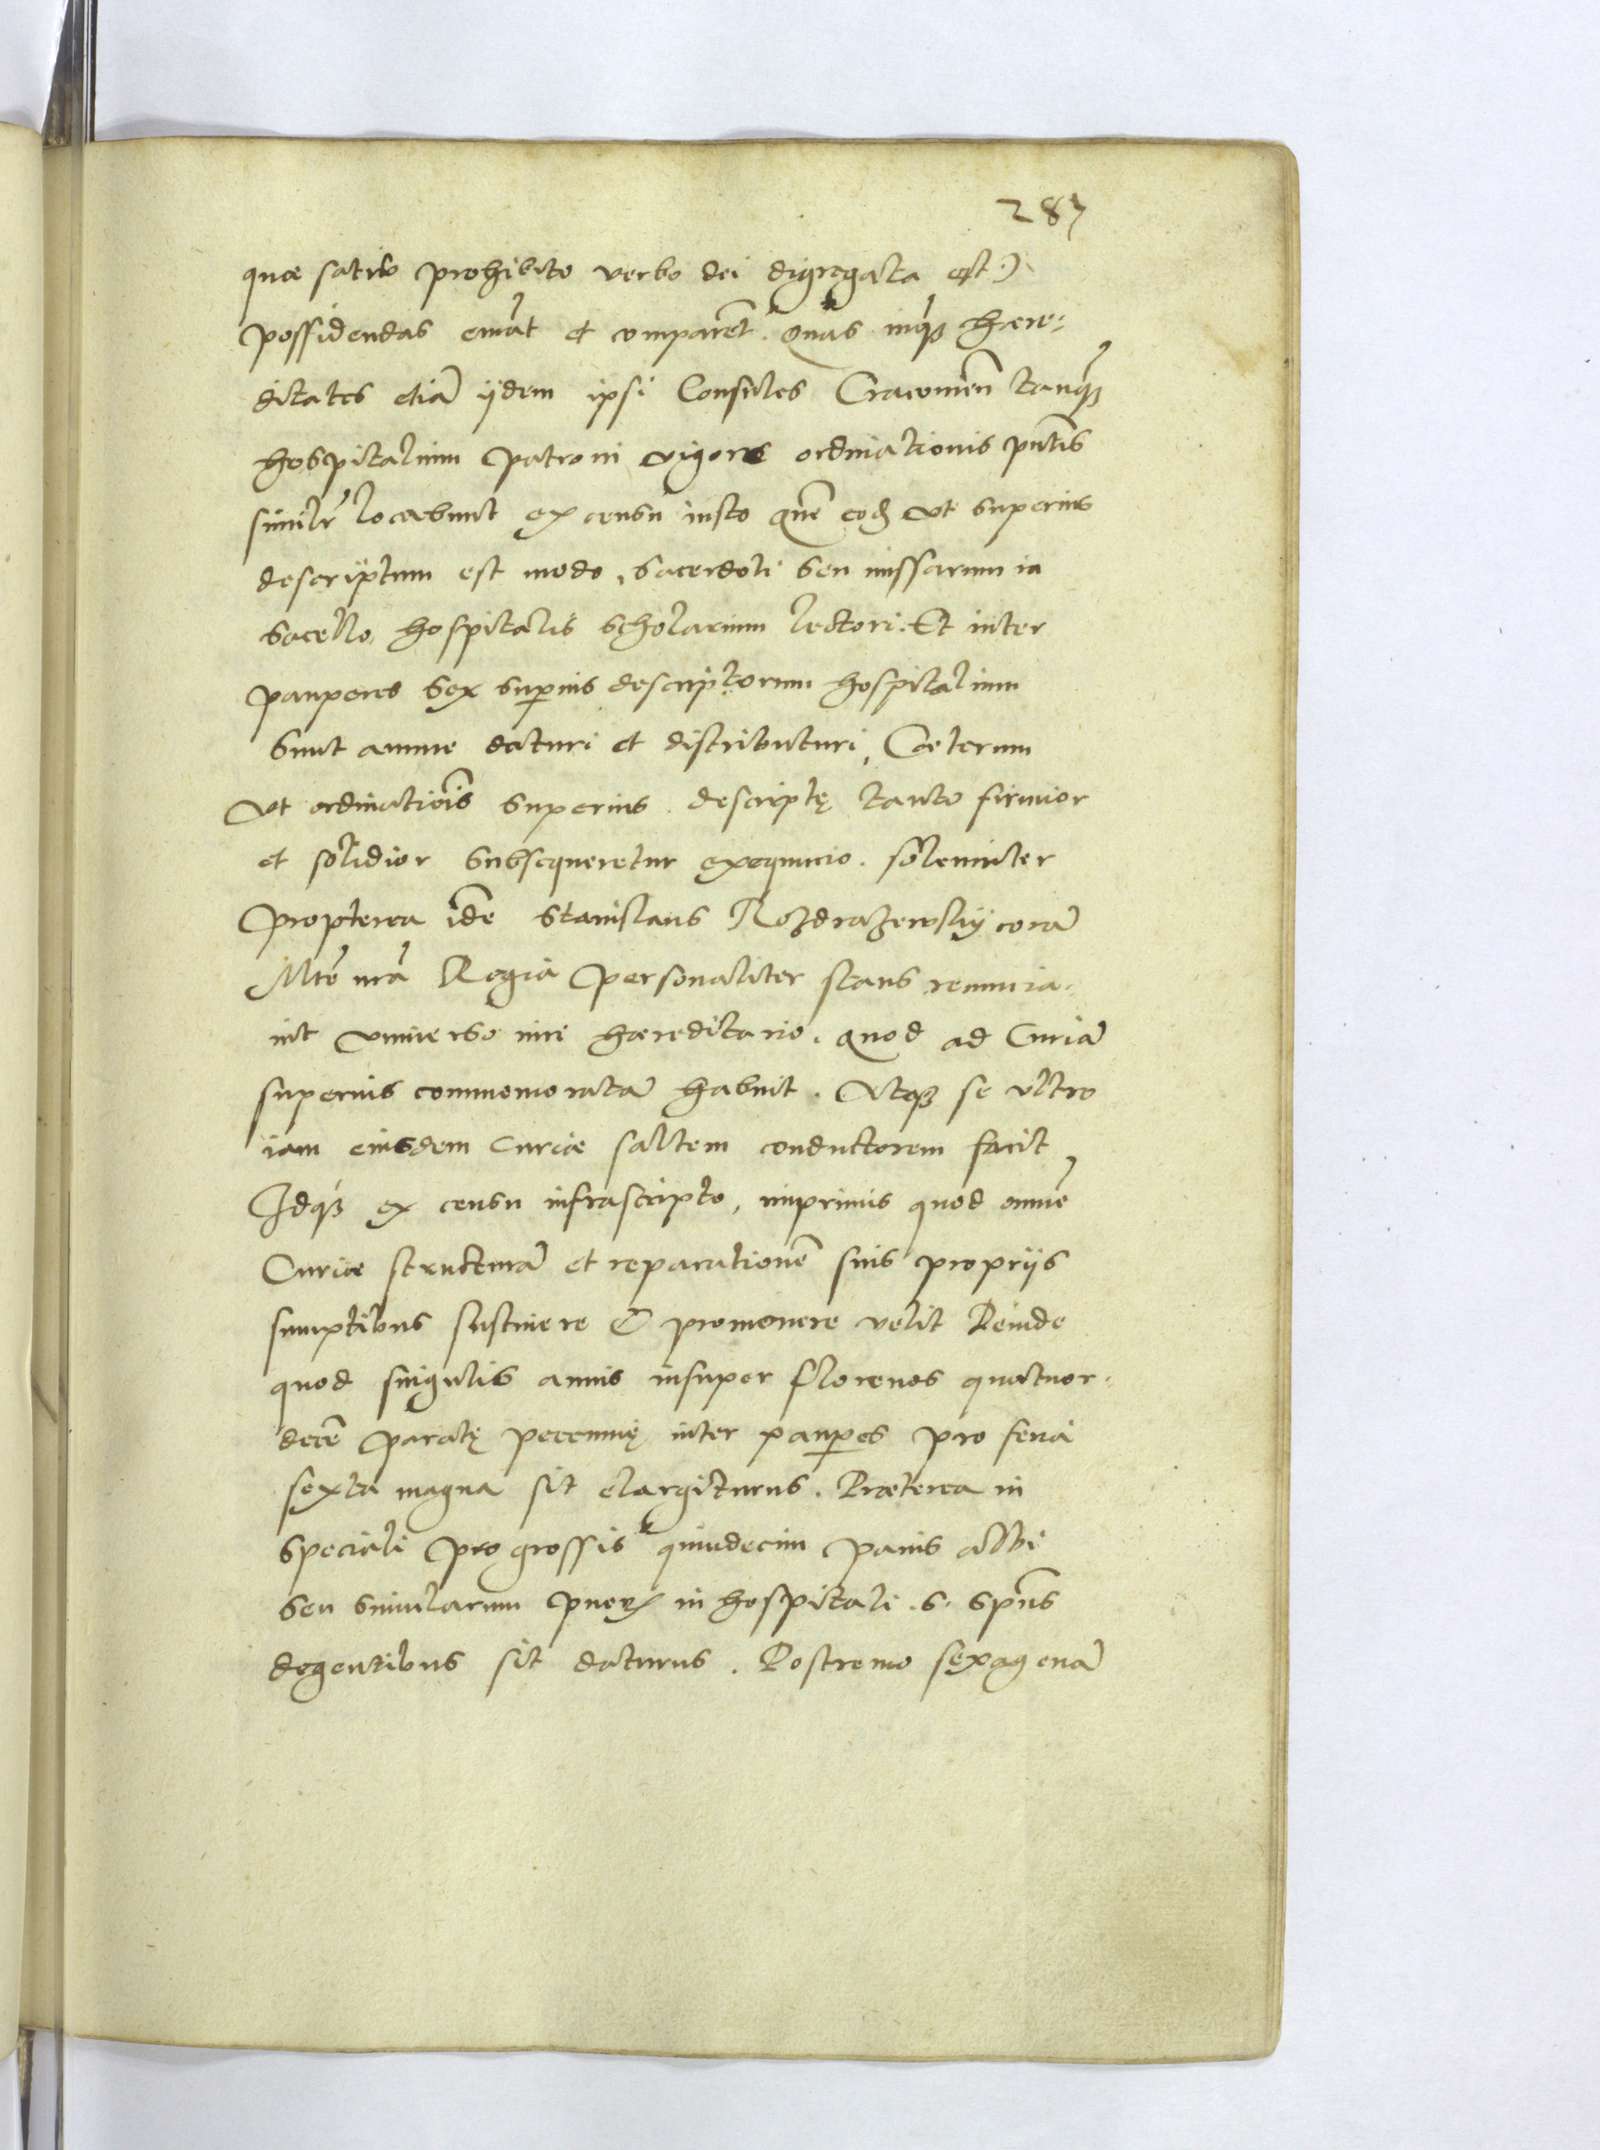 287
quæ satrio prohibito verbo dei digregata est.)
possidendas emāt et comparēt. Quas inqʒ hære-
ditates etiā ijdem ipsi Consules Cracovieñ tanqʒ
hospitalium patroni vigore ordinationis pñtis
similr̄ locabunt ex censu iusto quē eod̄ ut superius
descriptum est modo, sacerdoti seu missarum in
sacello hospitalis scholarium lectori. Et inter
pauperes sex superius descriptorum hospitalium
sunt annue daturi et distributuri, Cæterum
Ut ordinatiōis superius descriptę tanto firmior
et solidior subsequeretur exequucio. solemniter
propterea idē Stanislaus Rozdrazewsky corā
Mte nrā Regia personaliter stans renuncia-
uit vniuerso iuri hæreditario. quod ad Curiā
superius commemoratā habuit. Atqʒ se ultro
iam eiusdem Curiæ saltem conductorem facit
Idqʒ ex censu infrascripto, imprimis quod omnē
Curiæ structurā et reparationē suis propriis
sumptibus sustinere & promouere velit Deinde
quod singulis annis insuper florenos quatuor-
decē paratę pecunię inter paupes pro feria
sexta magna sit elargiturus. Præterea in
speciali pro grossis quindecim panis albi
seu similarum pueris in hospitali .S. Spūs
degentibus sit daturus. Postremo sexagenā